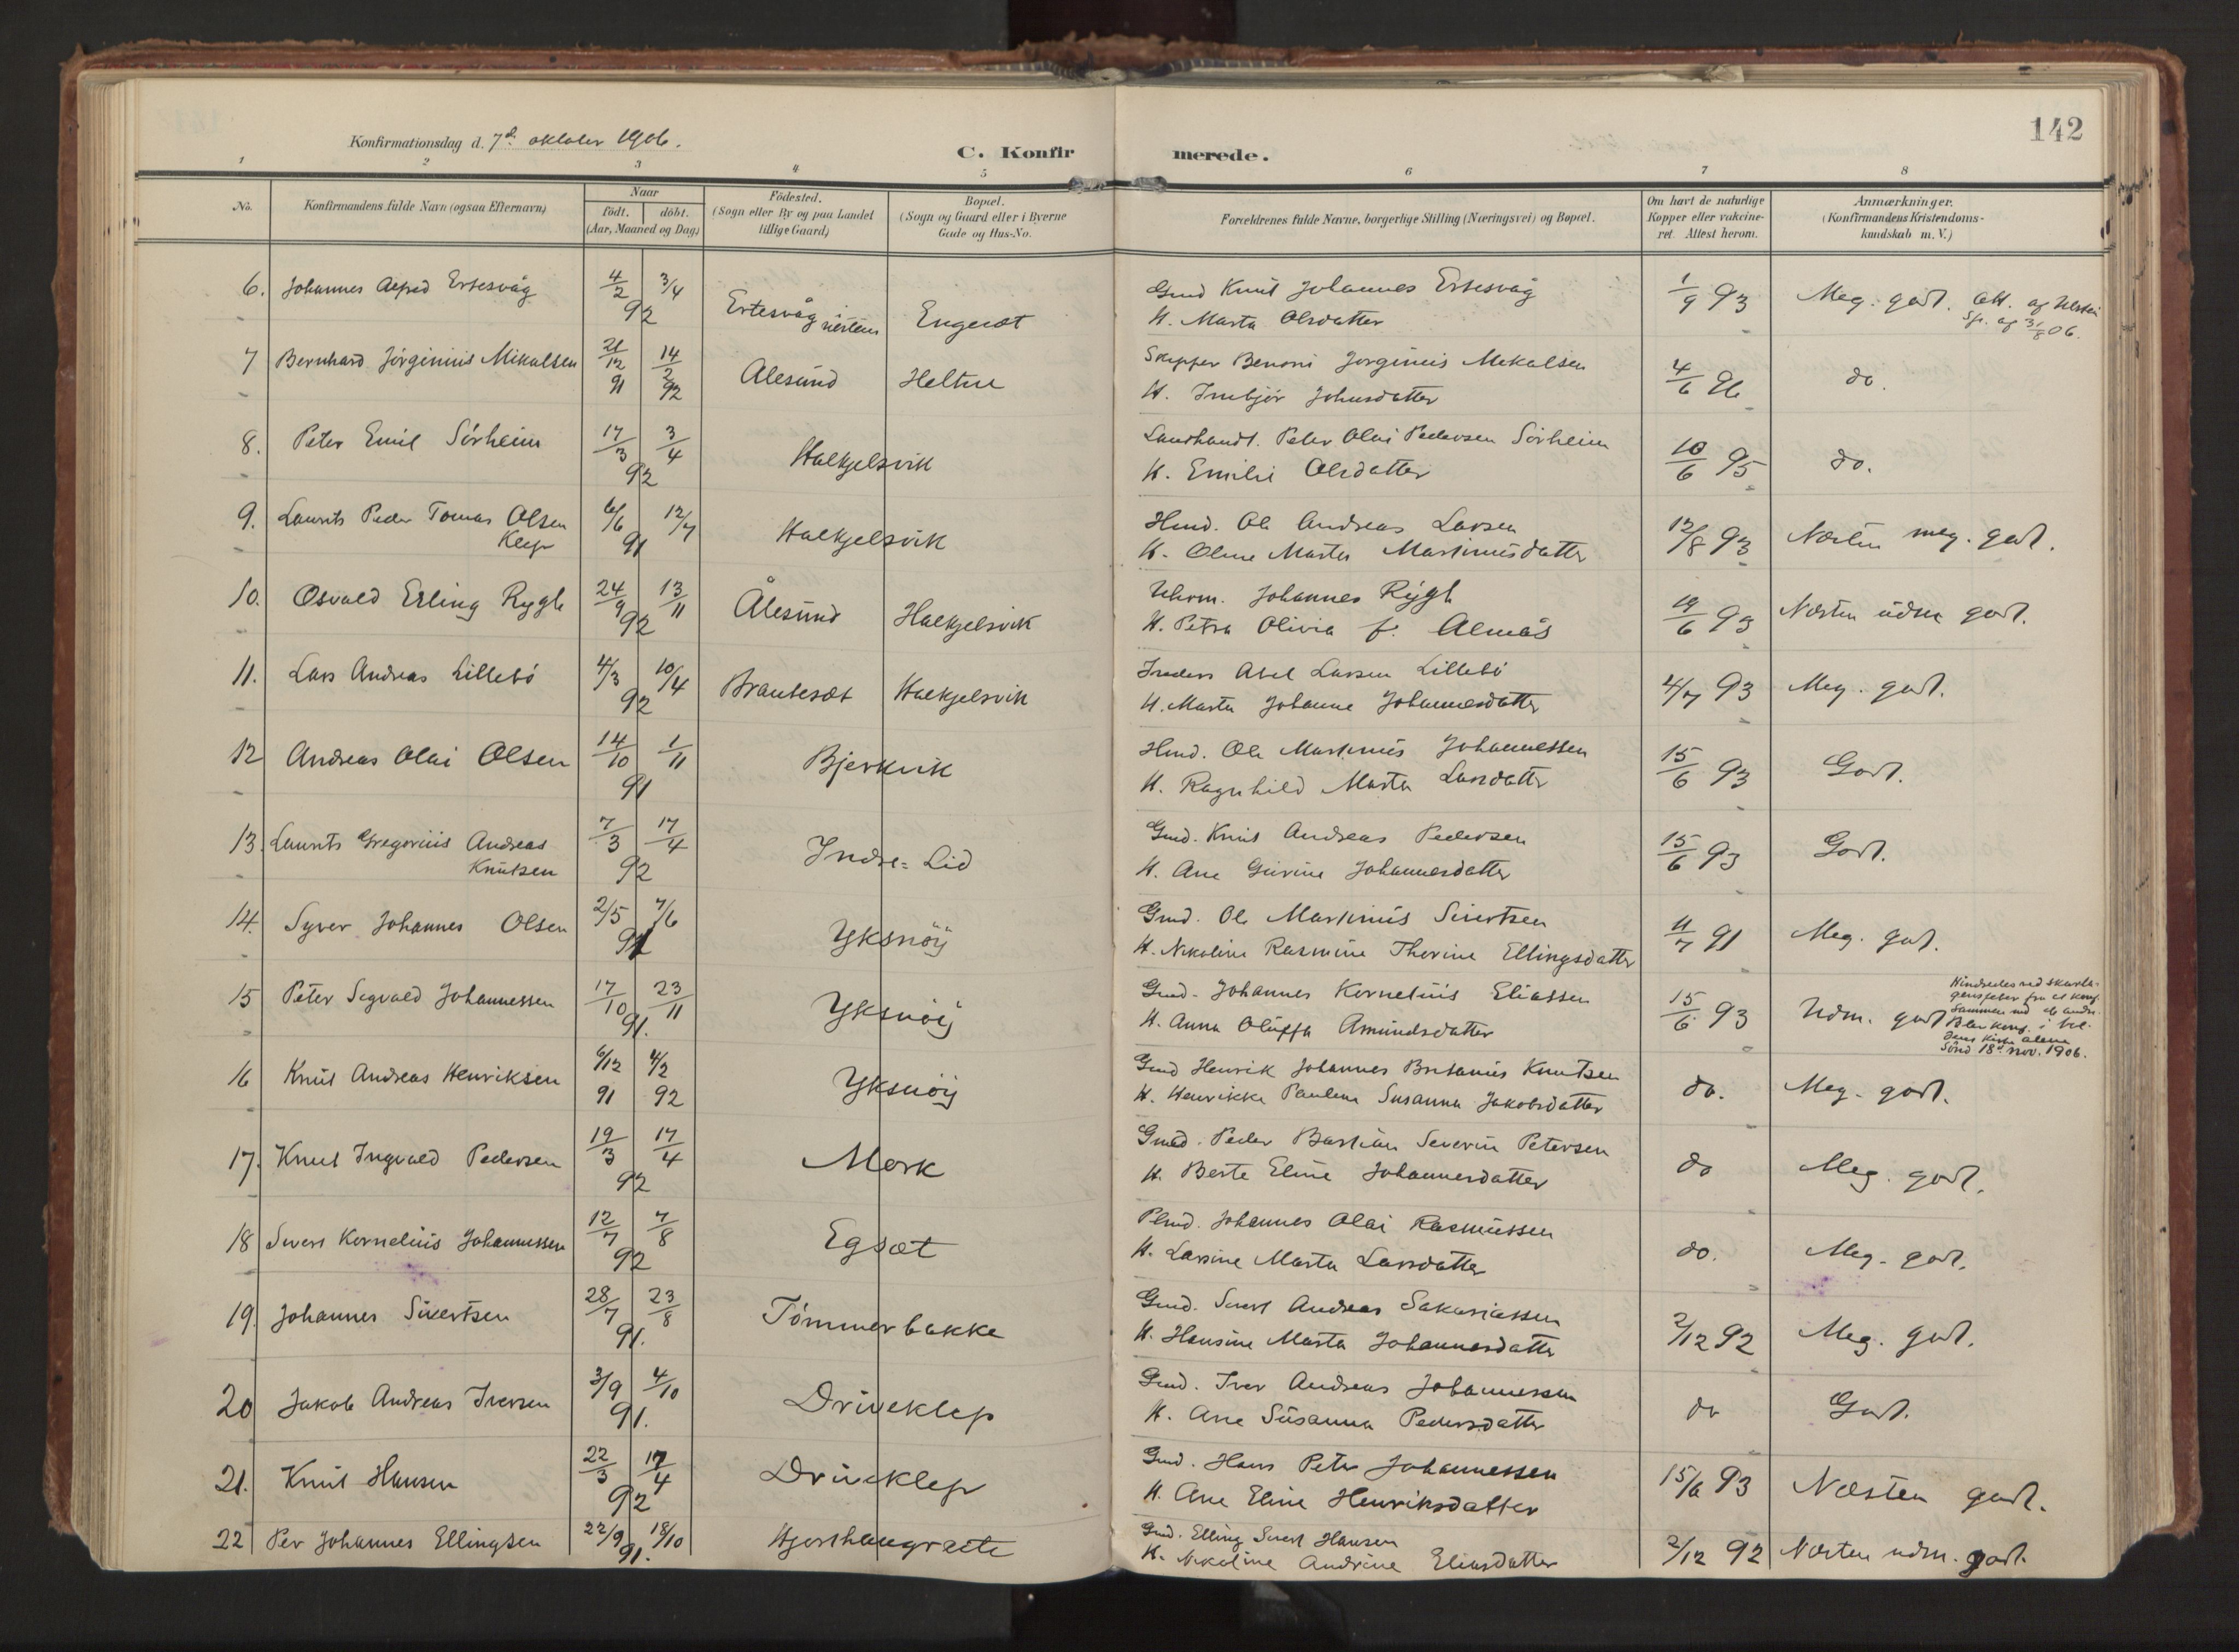 142
Konfirmationsdag d. 7d. oktober 1906.
C. Konfirmerede.
1 2 3 4 5 6 7 8
No.
Konfirmandens fulde Navn (ogsaa Efternavn)
Naar
født. døbt.
(Aar, Maaned og Dag)
Födested.
(Sogn eller By og paa Landet
tillige Gaard)
Bopæl.
(Sogn og Gaard eller i Byerne
Gade og Hus-No.
Forældrenes fulde Navne, borgerlige Stilling (Næringsvei) og Bopæl.
Om havt de naturlige
Kopper eller vakcine-
ret. Attest herom.
Anmærkninger.
(Konfirmandens Kristendoms-
kundskab m. V.)
6. Johannes Alfred Ertesvåg 4/2 3/4 92 Ertesvåg Engeset
Gmd Knut Johannes Ertesvåg
H. Marta Olsdatter
1/9 93 Meg. godt. Att. af
Sp. af 31/8 06.
7 Bernhard Jörginius Mikalsen 21/12 91 14/2 92 Ålesund Heltne
Skipper Benoni Jorginius Mekalsen
H. Inebjör Johnsdatter
4/6 96 do.
8. Peter Emil Sörheim 17/3 3/4 92 Halkjelsvik
Landhandl. Peter Olai Pedersen Sörheim
H. Emilie Olsdatter
10/6 95 do.
9. Laurits Peder Tomas Olsen
Klep 6/6 12/7 91 Halkjelsvik
Hmd. Ole Andreas Larsen
H. Oline Marta Martinusdatter
12/8 93 Næsten meg. godt.
10. Osvald Erling Rygh 24/9 13/11 92 Ålesund Halkjelsvik
Uhrm. Johannes Rygh
H. Petra Olivia f. Almås
19/6 93 Næsten udm godt.
11. Lars Andreas Lillebö 4/3 10/4 92 Brauteset Halkjelsvik
Inders Abel Larsen Lillebö
H. Marta Johanne Johannesdatter
4/7 93 Meg. godt.
12 Andreas Olai Olsen 14/10 1/11 91 Bjerkvik
Hmd. Ole Martinus Johannessen
H. Ragnhild Marta Larsdatter
15/6 93 Godt.
13. Laurits Gregorius Andreas
Knutsen 7/3 17/4 92 Indre-Lid
Gmd. Knut Andreas Pedersen
H. Ane Gurine Johannesdatter
15/6 93 Godt.
14. Syver Johannes Olsen 2/5 7/6 91 Yksnöy
Gmd. Ole Martinus Sivertsen
H. Nikoline Rasmine Thorine Ellingsdatter
11/7 91 Meg. godt.
15 Peter Sigvald Johannessen 17/10 23/11 91. Yksnöy
Gmd. Johannes Kornelius Eliassen
H. Anna Oluffa Amundsdatter
15/6 93 Udm. godt
Hindredes ved skarla-
gensfeber fra at konf.
sammen med de andre.
Blev konf. i Vol-
dens kirke alene
Sönd 18d nov. 1906.
16 Knut Andreas Henriksen 6/12 91 4/2 92 Yksnöy
Gmd Henrik Johannes Britanius Knutsen
H. Henrikke Pauline Susanna Jakobsdatter
do. Meg. godt.
17. Knut Ingvald Pedersen 19/3 17/4 92 Mork
Gmd. Peder Bastian Severin Petersen
H. Berte Eline Johannesdatter
do Meg. godt.
18 Sivert Kornelius Johannessen 12/7 7/8 92 Egset
Plmd. Johannes Olai Rasmussen
H. Larsine Marta Larsdatter
do. Meg. godt.
19. Johannes Sivertsen 28/7 23/8 91. Tömmerbakke
Gmd. Sivert Andreas Sakariassen
H. Hansine Marta Johannesdatter
2/12 92 Meg. godt.
20 Jakob Andreas Iversen 3/9 4/10 91. Driveklep
Gmd. Iver Andreas Johannessen
H. Ane Susanna Pedersdatter
do Godt.
21. Knut Hansen 22/3 17/4 92 Driveklep
Gmd. Hans Peter Johannessen
H. Ane Eline Henriksdatter
15/6 93 Næsten godt.
22 Per Johannes Ellingsen 22/9 18/10 91. Hjorthaugræite
Gmd. Elling Sivert Hansen
H. Nikoline Andrine Eliasdatter
2/12 92 Næsten udm. godt.